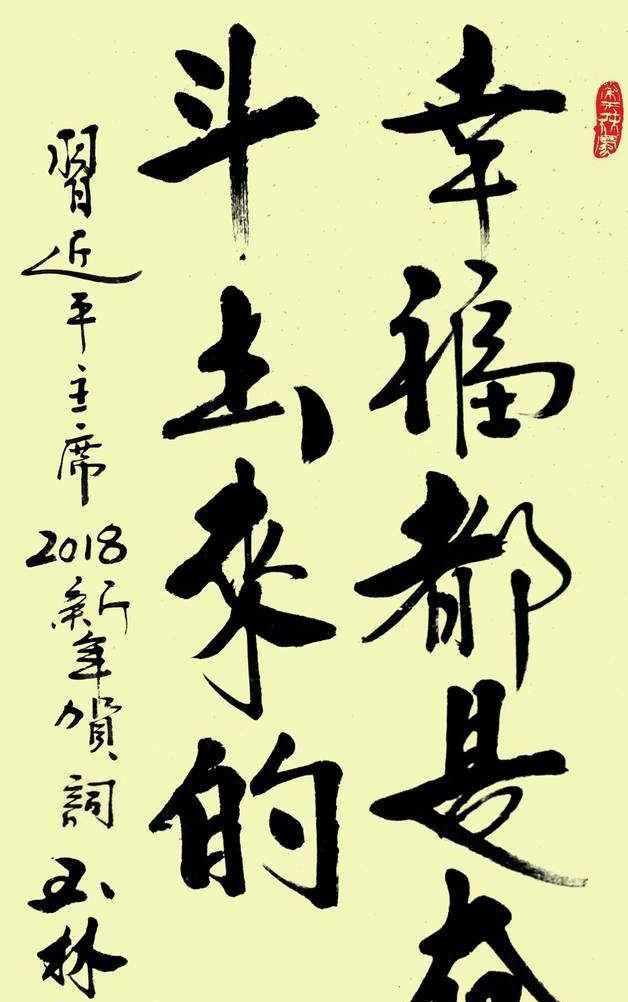 幸福都是奋
斗出來的
習近平主席2018新年賀詞 玉林